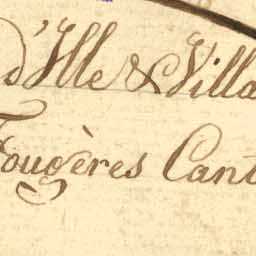 d'Ille & Villa
Fougères Cant